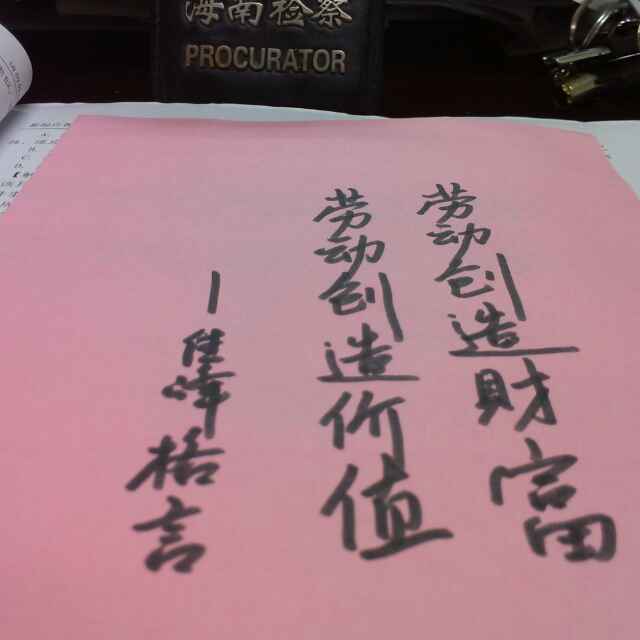 海南检察
PROCURATOR
劳动创造財富
劳动创造价值
—佳峰格言